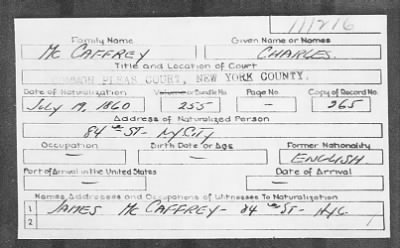 111276
Family Name Given Name or Names
Mc CAFFREY CHARLES.
Title and Location of Court
COMMON PLEAS COURT, NEW YORK COUNTY.
Date of Naturalization Volume or Bundle No. Page No. Copy of Record No.
July 19, 1860 255 — 365
Address of Naturalized Person
84 th ST- NYCity
Occupation Birth Date or Age Former Nationality
— — ENGLISH.
Port of Arrival in the United States Date of Arrival
— —
Names, Addresses and Occupations of Witnesses To Naturalization
1 JAMES Mc CAFFREY- 84 th ST- NYC
2